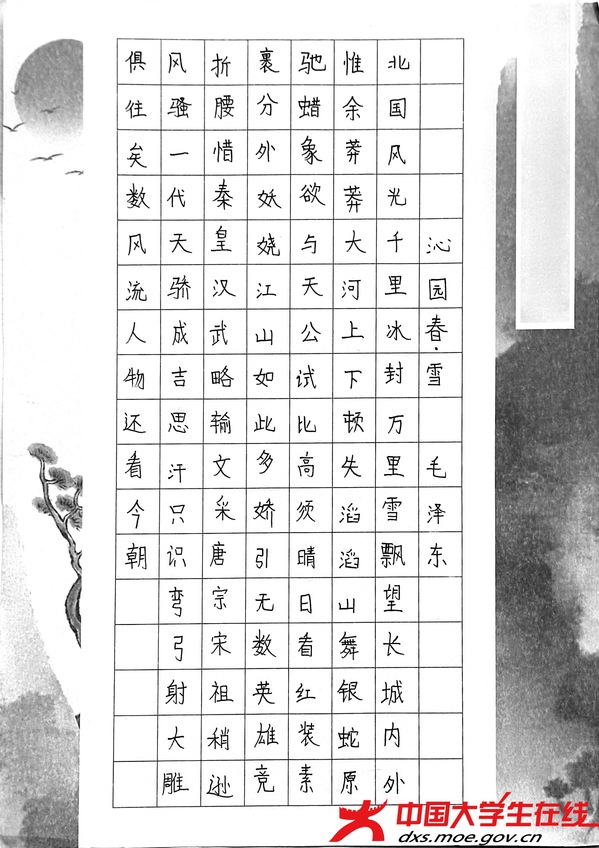 沁园春·雪 毛泽东
北国风光千里冰封万里雪飘望长城内外
惟余莽莽大河上下顿失滔滔山舞银蛇原
驰蜡象欲与天公试比高须晴日看红装素
裹分外妖娆江山如此多娇引无数英雄竞
折腰惜秦皇汉武略输文采唐宗宋祖稍逊
风骚一代天骄成吉思汗只识弯弓射大雕
俱住矣数风流人物还看今朝
中国大学生在线
dxs.moe.gov.cn